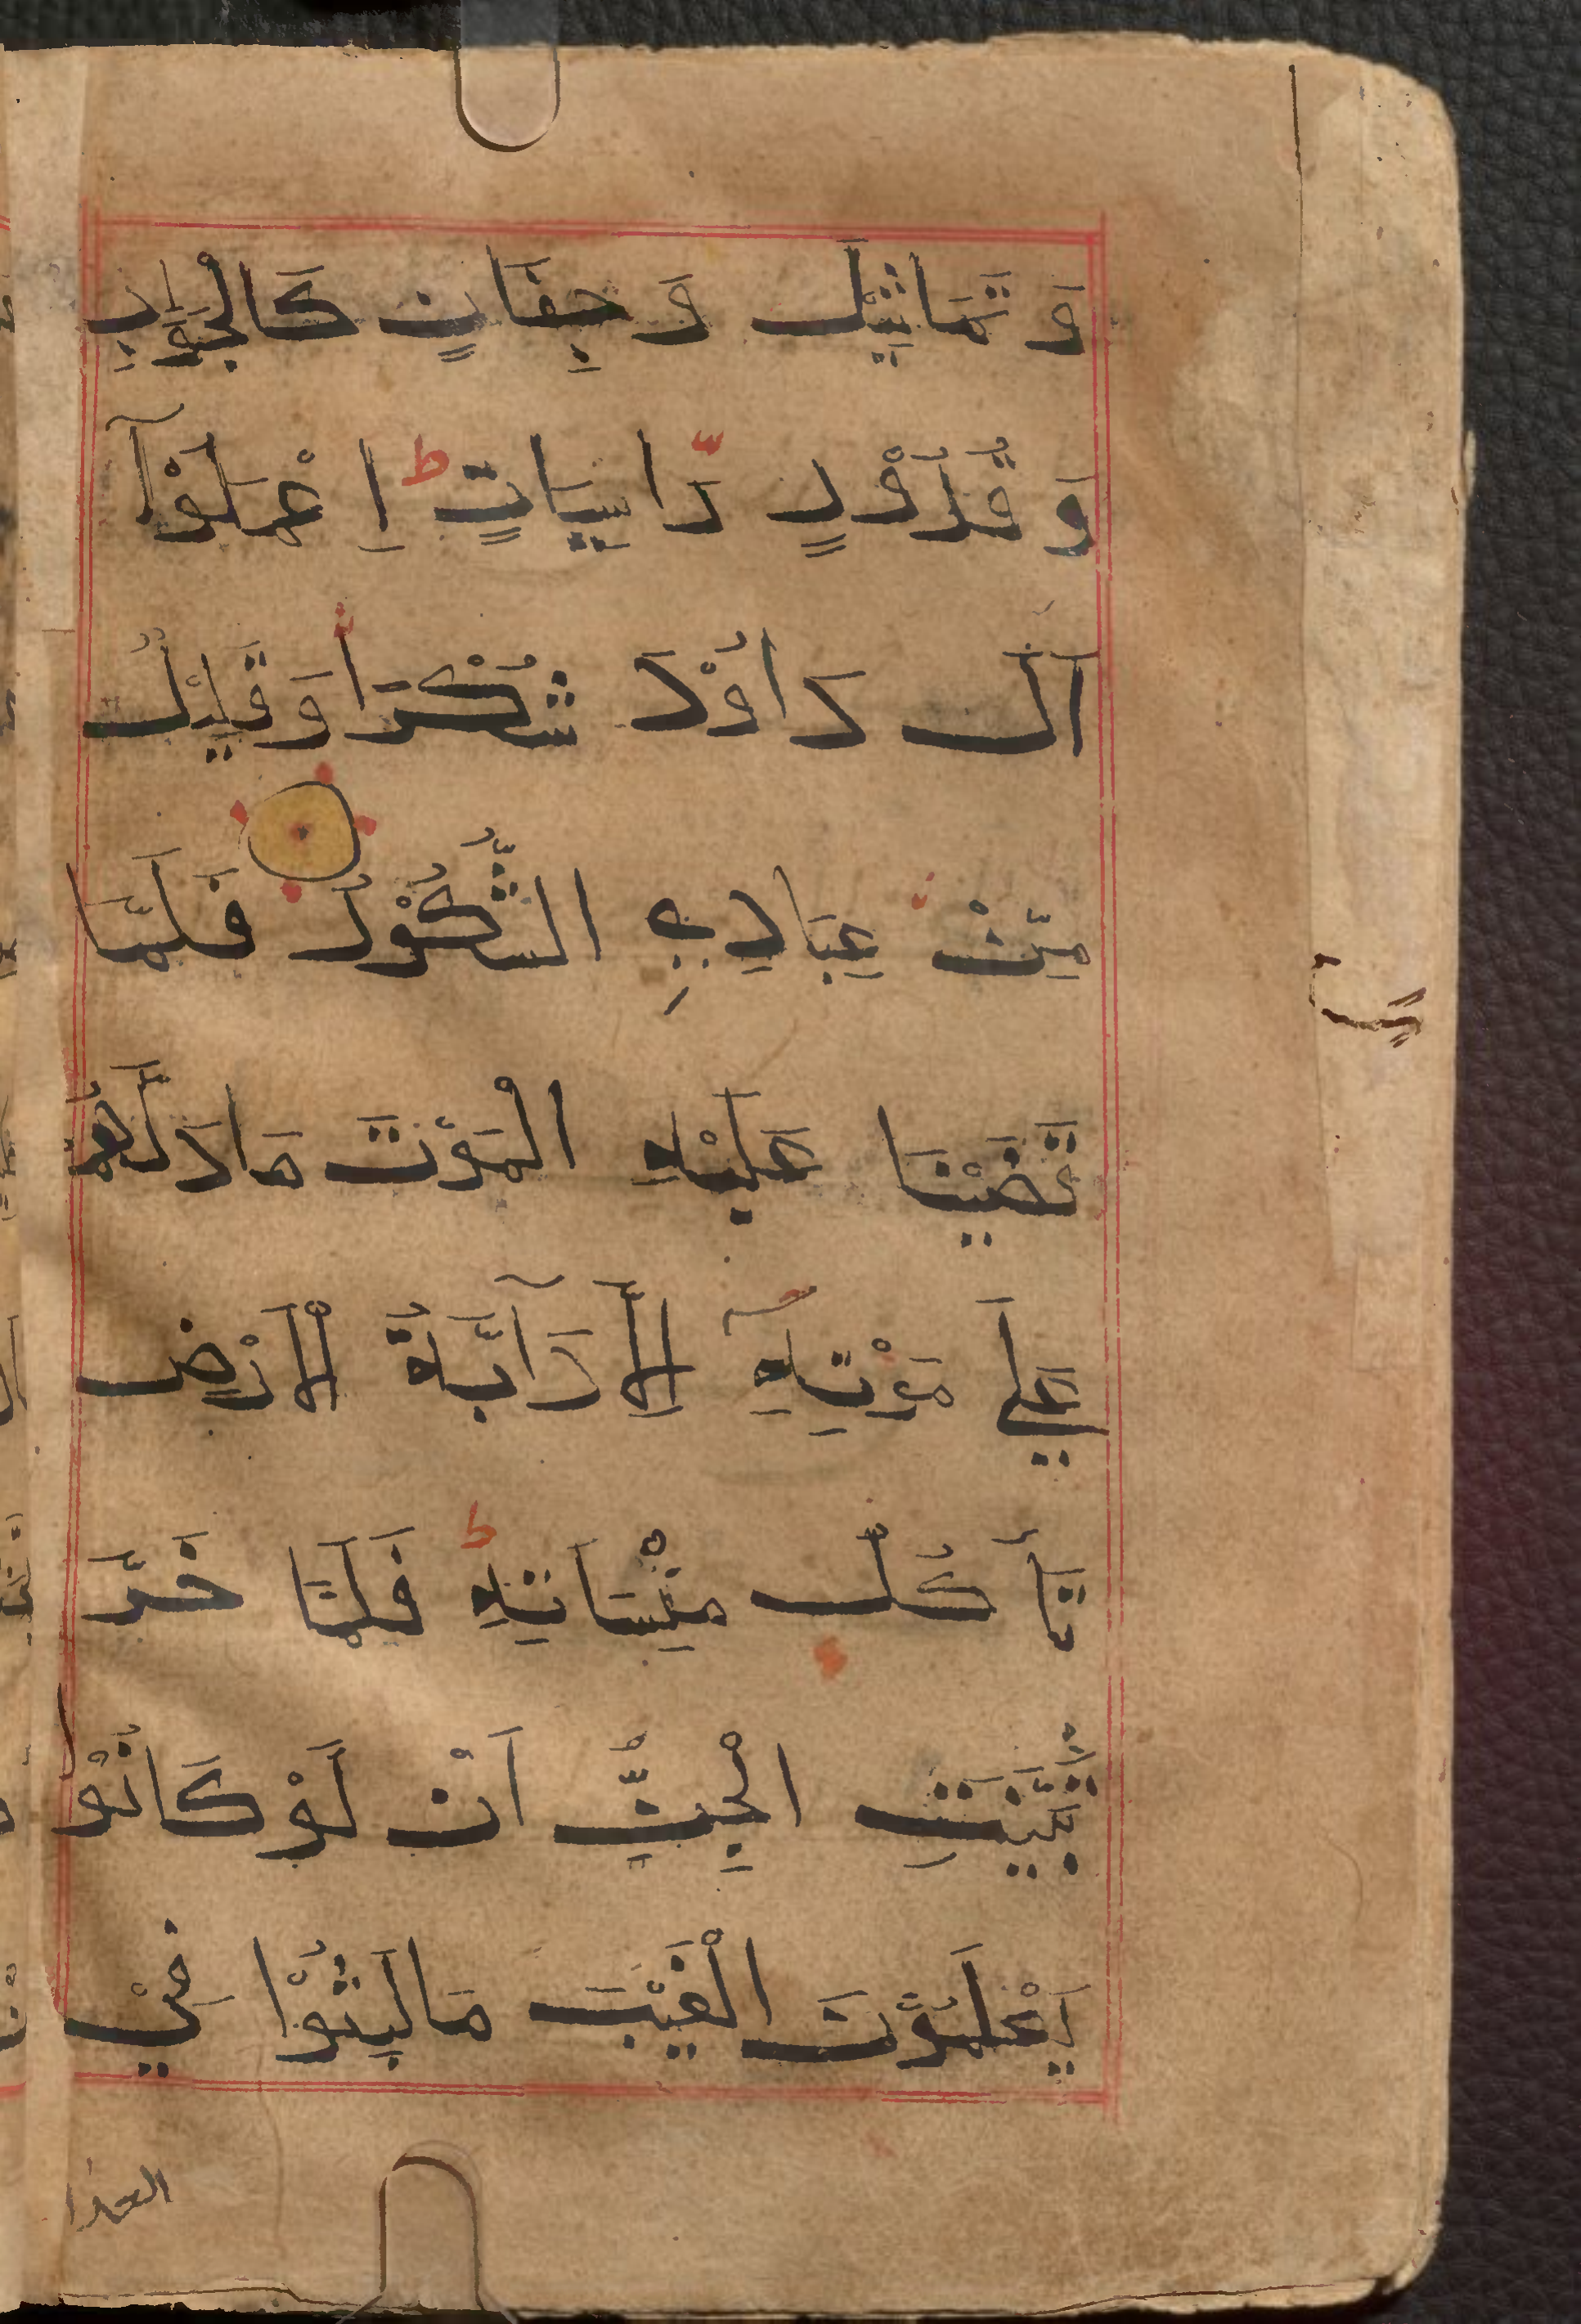 وَ تَمَاثِيْلَ وَ جِفَانٍ كَالْجَوَابِ
وَ قُدُوْرٍ رَّاسِيَاتٍ ط اِعْمَلُوْآ
اٰلَ دَاوُٗدَ شُكْرًا وَ قَلِيْلٌ
مِّنْ عِبَادِيَ الشَّكُوْرُ فَلَمَّا
قَضَيْنَا عَلَيْهِ الْمَوْتَ مَا دَلَّهُمْ
عَلٰي مَوْتِهٖٓ اِلَّا دَآبَّةُ الْاَرْضِ
تَأْكُلُ مِنْسَاَتَهٗ ط فَلَمَّا خَرَّ
تَبَيَّنَتِ الْجِنُّ اَنْ لَّوْ كَانُوْا
يَعْلَمُوْنَ الْغَيْبَ مَا لَبِثُوْا فِيْ
العذا